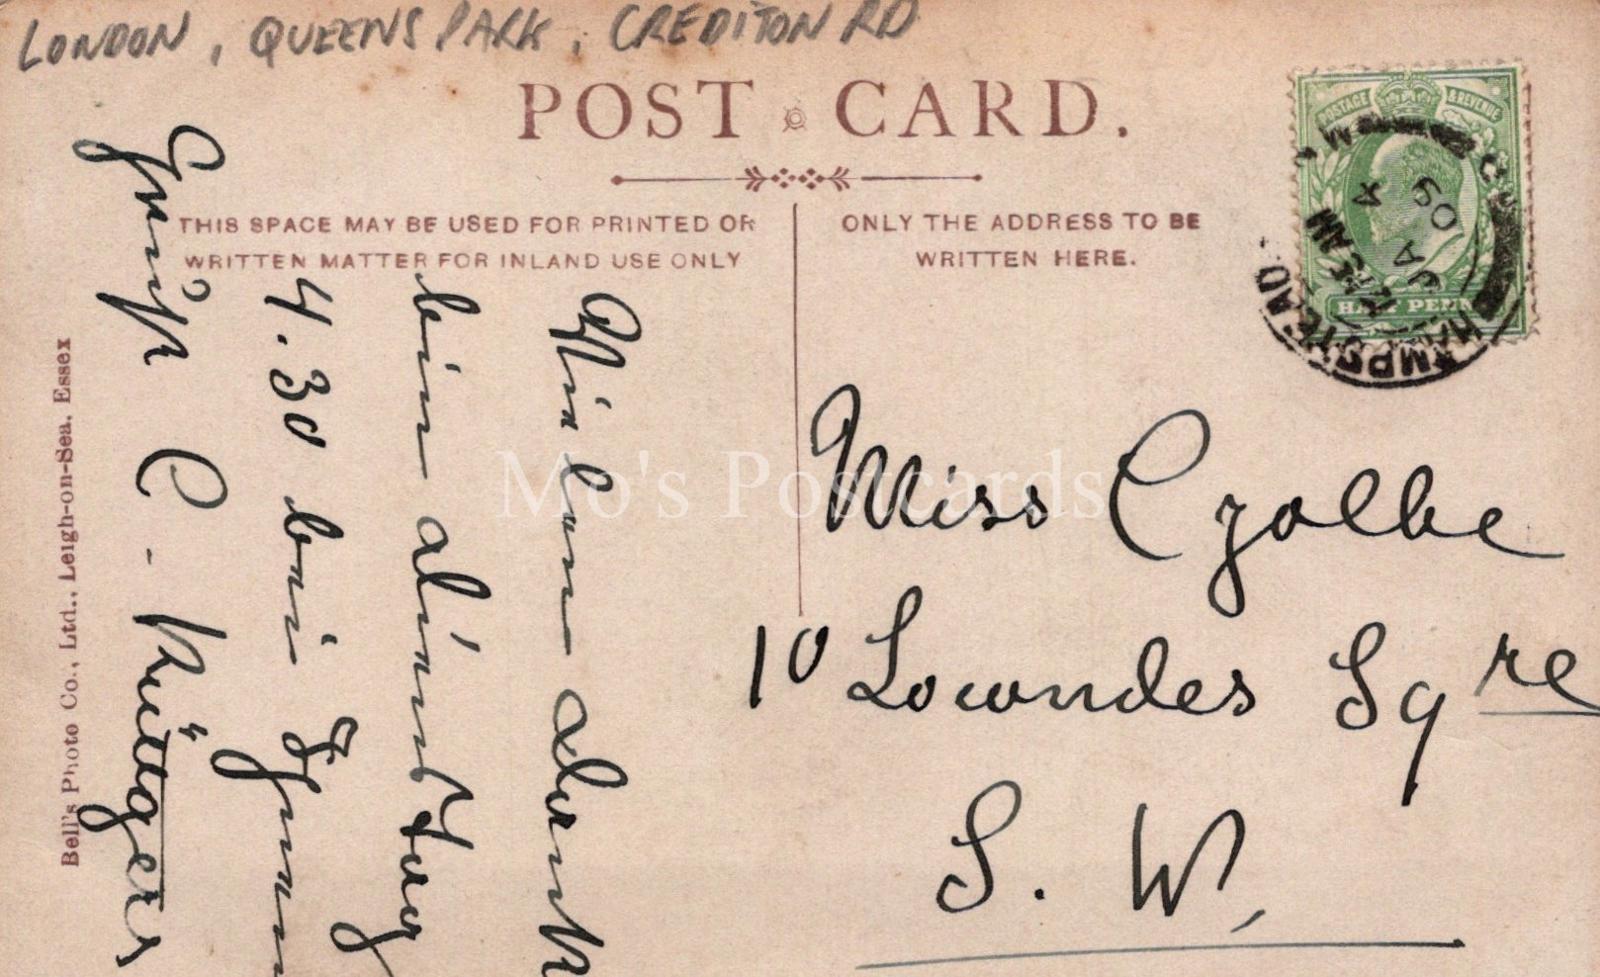 LONDON, QUEENS PARK, CREDITON RD
POST CARD.
THIS SPACE MAY BE USED FOR PRINTED OR
WRITTEN MATTER FOR INLAND USE ONLY
ONLY THE ADDRESS TO BE
WRITTEN HERE.
POSTAGE & REVENUE
HALF PENNY
HAMPSTEAD.
JA 4
09
Vielen Dank
bin dienstag
4.30 bei Ihnen
Gruß C. Rüttgers
Miss Czolbe
10 Lowndes Sqre
S. W.
Bell's Photo Co., Ltd., Leigh-on-Sea, Essex
Mo's Postcards